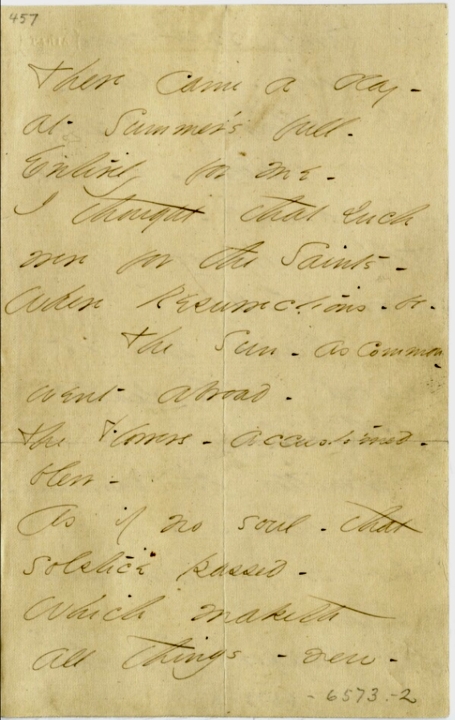 457
There came a day -
at Summer's full -
Entirely for me -
I thought that such
were for the Saints -
Where Resurrections - be -
The Sun - as common -
went abroad -
The Flowers - accustomed -
blew -
As if no soul - that
solstice passed -
Which maketh
all things - new -
- 6573 - 2